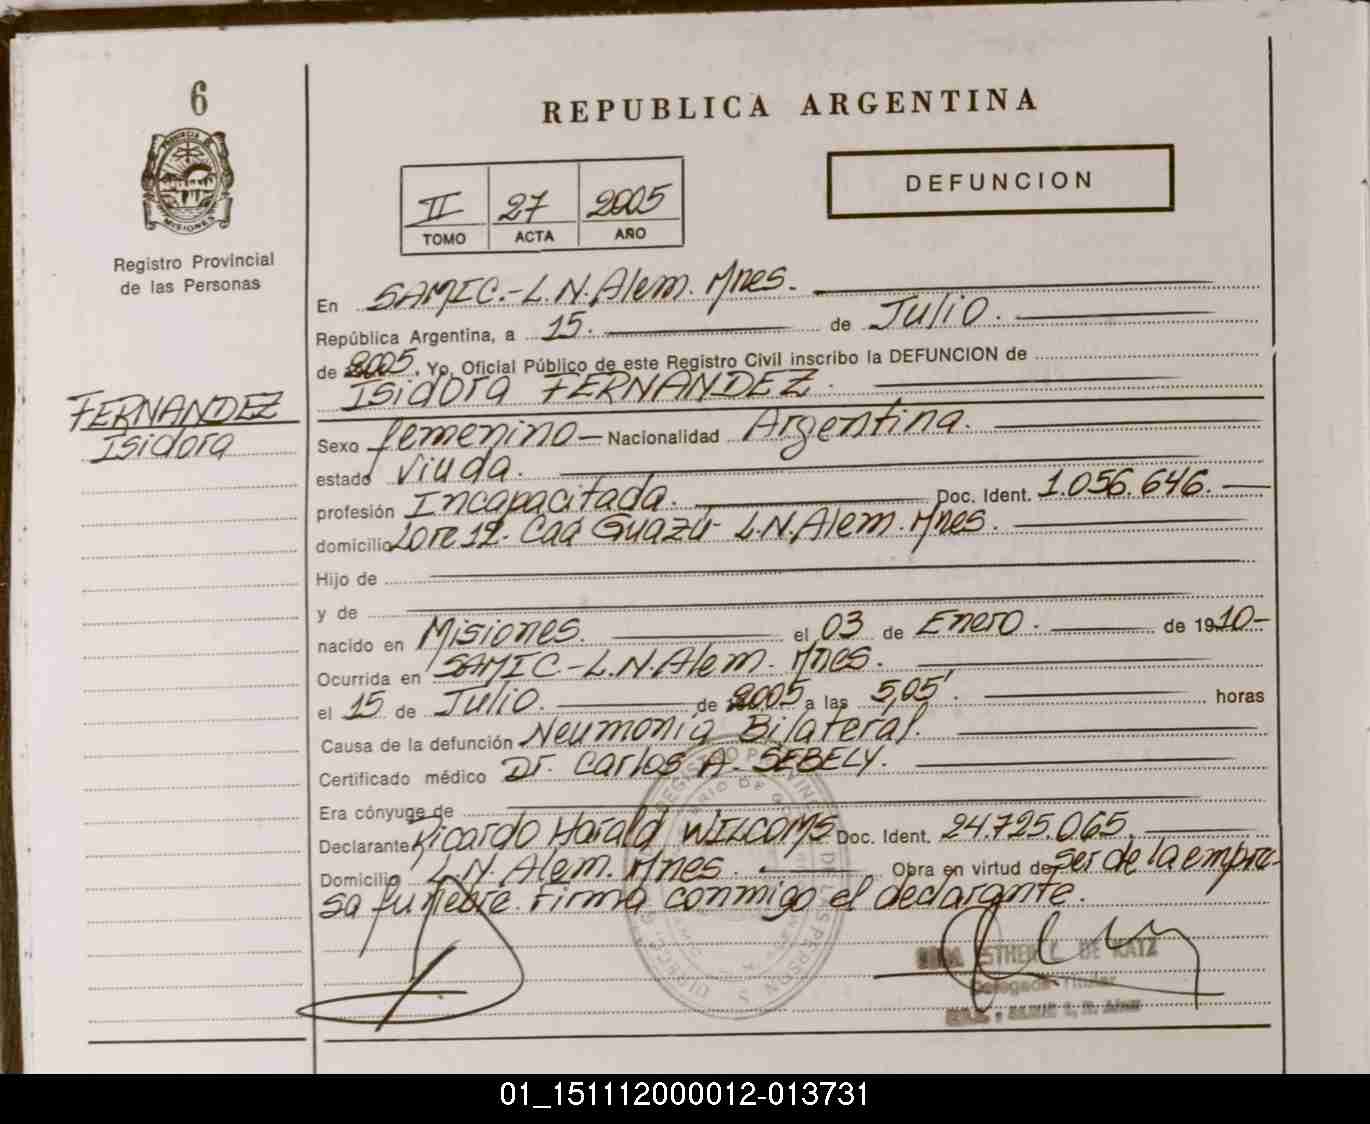 6
REPUBLICA ARGENTINA
DEFUNCION
II 27 2005
TOMO ACTA AÑO
MISIONES
Registro Provincial
de las Personas
FERNANDEZ
Isidora
En SAMIC.-L.N.Alem. Mnes.
República Argentina, a 15. de Julio.
de 2005. Yo, Oficial Público de este Registro Civil inscribo la DEFUNCION de
Isidora FERNANDEZ.
Sexo femenino - Nacionalidad Argentina.
estado viuda.
profesión Incapacitada. Doc. Ident. 1.056.646.
domicilio Lote 12. Caá Guazú L.N.Alem. Mnes.
Hijo de
y de
nacido en Misiones. el 03 de Enero. de 1910-
Ocurrida en SAMIC.-L.N.Alem. Mnes.
el 15 de Julio. de 2005 a las 5,05'. horas
Causa de la defunción Neumonia Bilateral.
Certificado médico Dr. Carlos A. SEBELY.
Era cónyuge de
Declarante Ricardo Harald WILCOMS Doc. Ident. 24.725.065.
Domicilio L.N. Alem. Mnes. Obra en virtud de ser de la empre-
sa funebre. Firma conmigo el declarante.
ESTHER DE KATZ
Delegada Titular
01_151112000012-013731